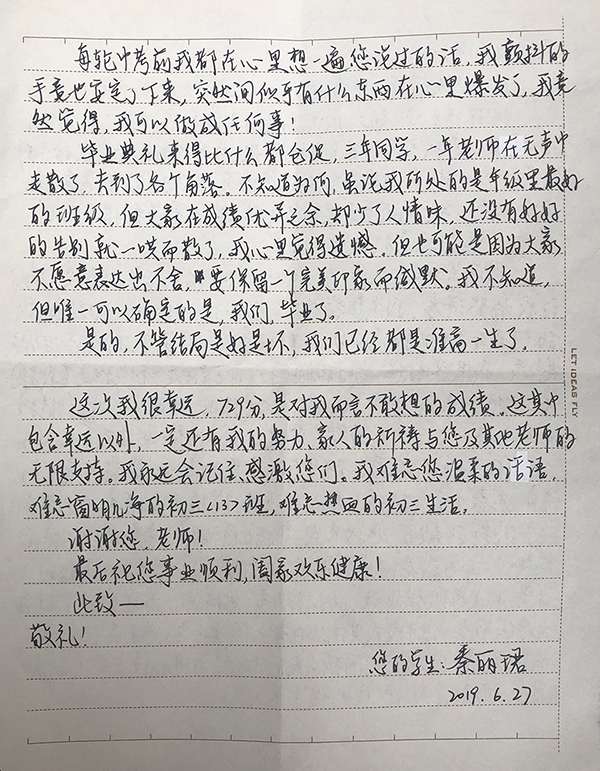 每轮中考前我都在心里想一遍您说过的话，我颤抖的
手竟也安定了下来，突然间似乎有什么东西在心里爆发了，我竟
然觉得，我可以做成任何事！
毕业典礼来得比什么都仓促，三年同学，一年老师在无声中
走散了，去到了各个角落。不知道为何，虽说我所处的是年级里最好
的班级，但大家在成绩优异之余，却少了人情味，还没有好好
的告别就一哄而散了，我心里觉得遗憾。但也可能是因为大家
不愿意表达出不舍，要保留一个完美印象而缄默。我不知道，
但唯一可以确定的是，我们，毕业了。
是的，不管结局是好是坏，我们已经都是准高一生了。
这次我很幸运，729分，是对我而言不敢想的成绩。这其中
包含幸运以外，一定还有我的努力、家人的祈祷与您及其他老师的
无限支持。我永远会记住、感激您们。我难忘您温柔的话语，
难忘窗明几净的初三<13>班，难忘热血的初三生活。
谢谢您，老师！
最后祝您事业顺利，阖家欢乐健康！
此致——
敬礼！
您的学生：秦丽珺
2019.6.27
LET IDEAS FLY